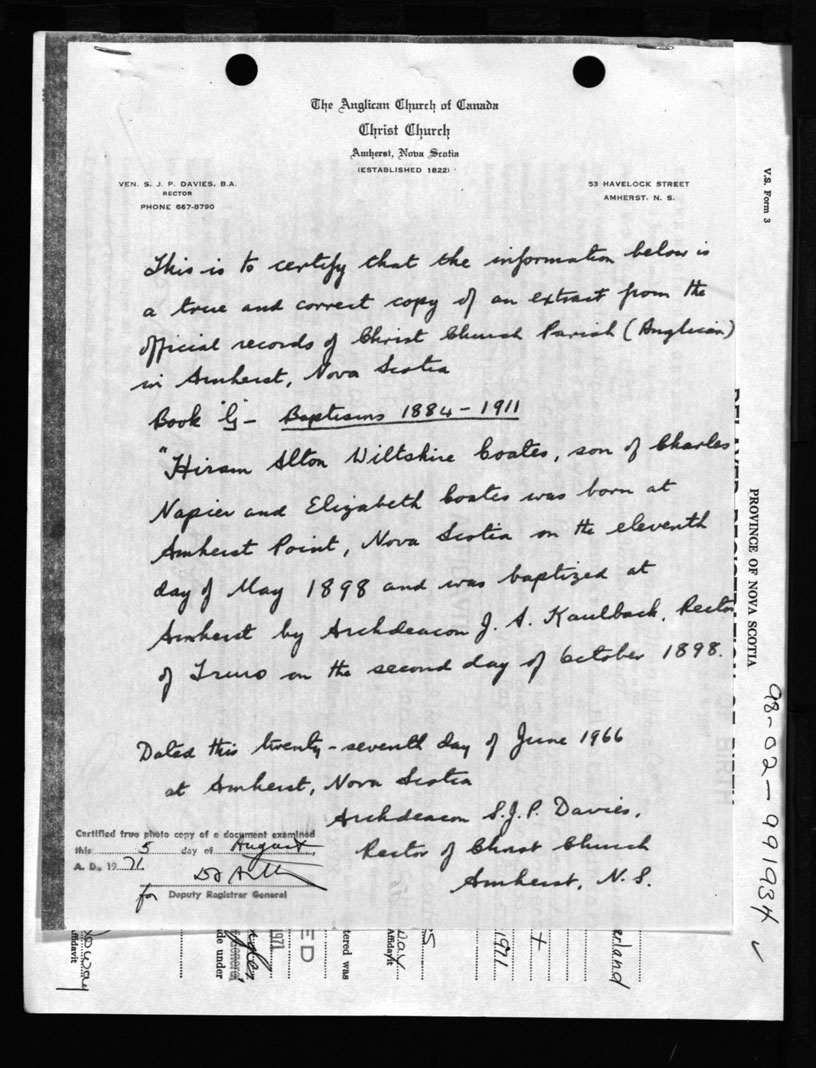 The Anglican Church of Canada
Christ Church
Amherst, Nova Scotia
(ESTABLISHED 1822)
VEN. S. J. P. DAVIES, B.A.
RECTOR
PHONE 667-8790
53 HAVELOCK STREET
AMHERST, N. S.
This is to certify that the information below is
a true and correct copy of an extract from the
official records of Christ Church Parish (Anglican)
in Amherst, Nova Scotia
Book "G" - Baptisms 1884 - 1911
"Hiram Alton Wiltshire Coates, son of Charles
Napier and Elizabeth Coates was born at
Amherst Point, Nova Scotia on the eleventh
day of May 1898 and was baptized at
Amherst by Archdeacon J. A. Kaulback, Rector
of Truro on the second day of October 1898.
Dated this twenty-seventh day of June 1966
at Amherst, Nova Scotia
Archdeacon S.J.P. Davies,
Rector of Christ Church
Amherst, N.S.
Certified true photo copy of a document examined
this 5 day of August
A. D., 19 71
for Deputy Registrar General
V.S. Form 3
PROVINCE OF NOVA SCOTIA
OF BIRTH
98-02-991934
erland
1971
5
way
Affidavit
tered was
ED
1971
de under
away
ffidavit